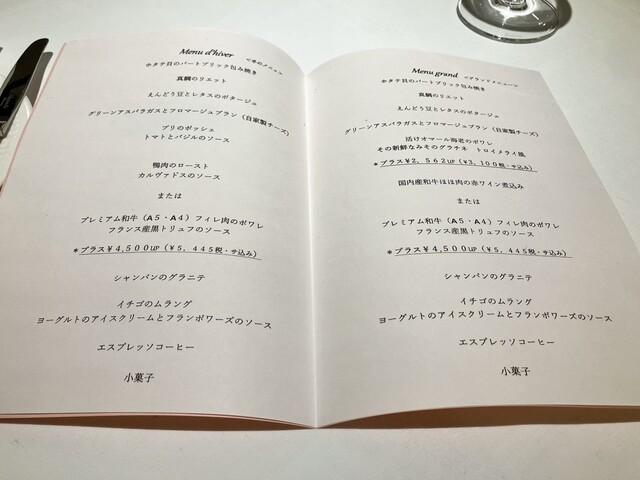 Menu d'hiver <冬のメニュー>
ホタテ貝のパートブリック包み焼き
真鯛のリエット
えんどう豆とレタスのポタージュ
グリーンアスパラガスとフロマージュブラン（自家製チーズ）
ブリのポッシェ
トマトとバジルのソース
鴨肉のロースト
カルヴァドスのソース
または
プレミアム和牛（A5・A4）フィレ肉のポワレ
フランス産黒トリュフのソース
*プラス¥4,500UP（¥5，445税・サ込み）
シャンパンのグラニテ
イチゴのムラング
ヨーグルトのアイスクリームとフランボワーズのソース
エスプレッソコーヒー
小菓子
Menu grand <グランドメニュー>
ホタテ貝のパートブリック包み焼き
真鯛のリエット
えんどう豆とレタスのポタージュ
グリーンアスパラガスとフロマージュブラン（自家製チーズ）
活けオマール海老のポワレ
その新鮮なみそのグラチネ トロイメライ風
*プラス¥2，562UP（¥3，100税・サ込み）
国内産和牛ほほ肉の赤ワイン煮込み
または
プレミアム和牛（A5・A4）フィレ肉のポワレ
フランス産黒トリュフのソース
*プラス¥4,500UP（¥5，445税・サ込み）
シャンパンのグラニテ
イチゴのムラング
ヨーグルトのアイスクリームとフランボワーズのソース
エスプレッソコーヒー
小菓子